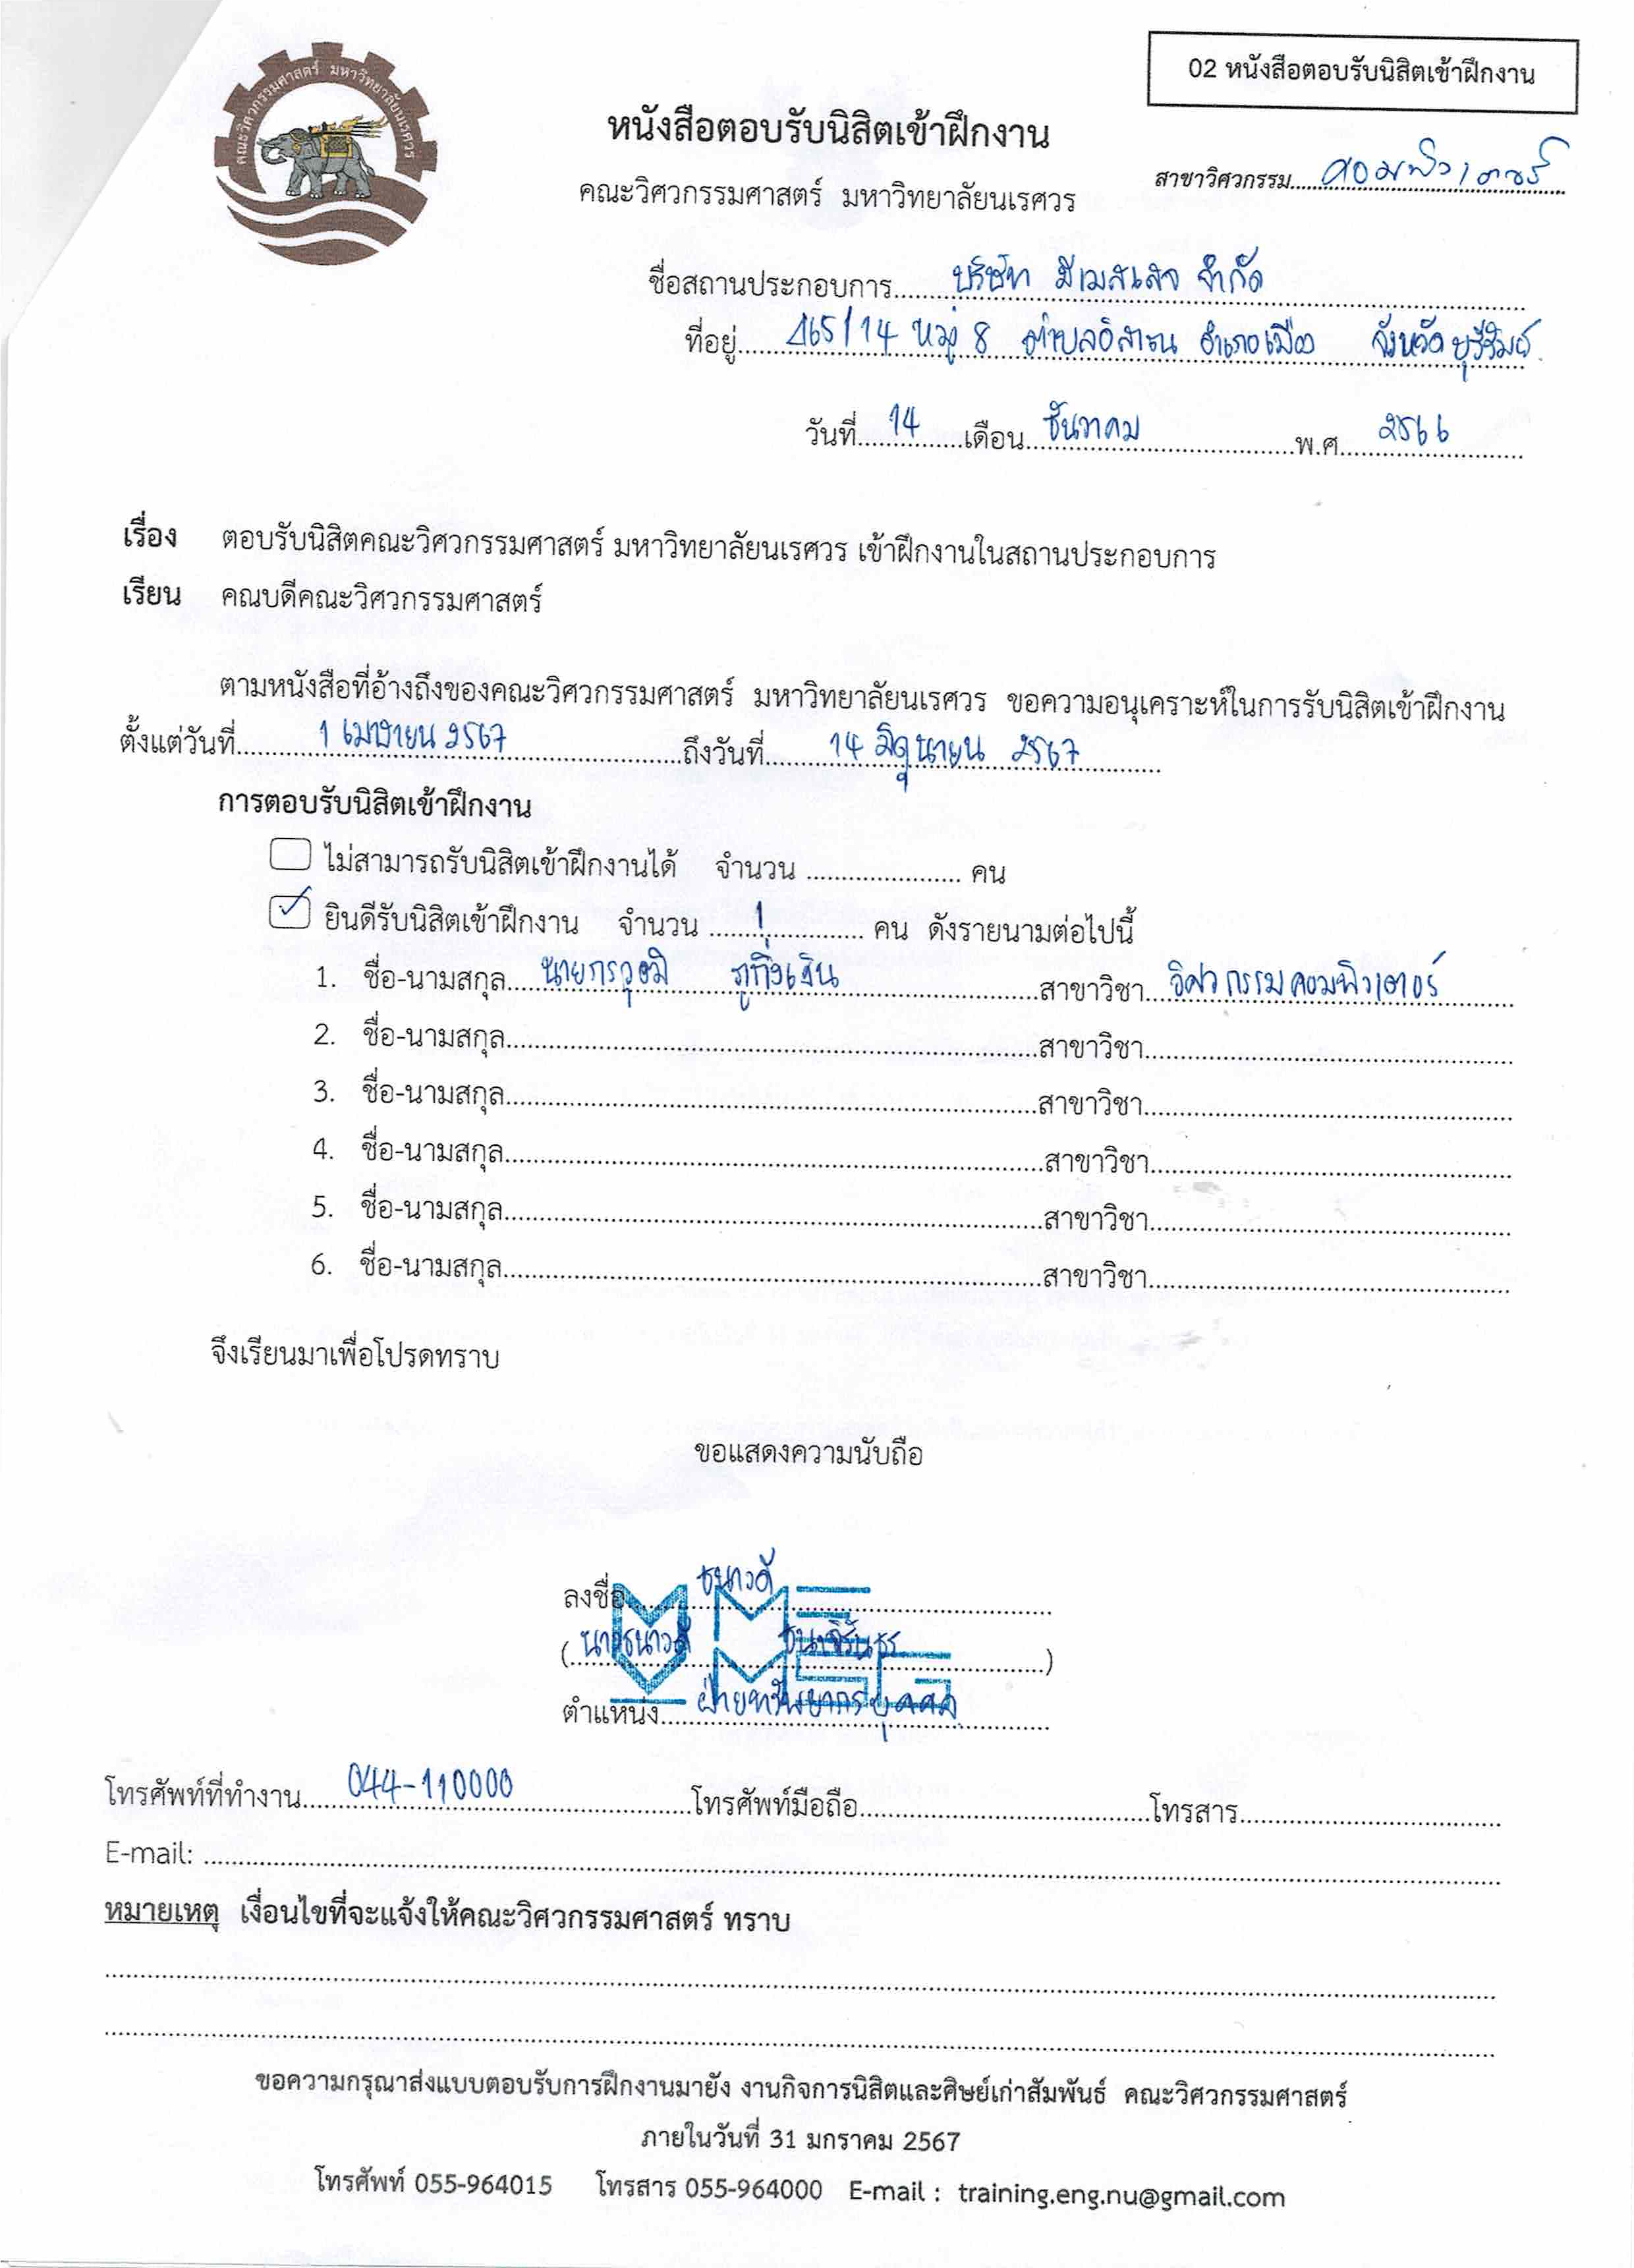 คณะวิศวกรรมศาสตร์ มหาวิทยาลัยนเรศวร
02 หนังสือตอบรับนิสิตเข้าฝึกงาน
หนังสือตอบรับนิสิตเข้าฝึกงาน
สาขาวิศวกรรม คอมพิวเตอร์
คณะวิศวกรรมศาสตร์ มหาวิทยาลัยนเรศวร
ชื่อสถานประกอบการ บริษัท มีเมสเสจ จำกัด
ที่อยู่ 465/14 หมู่ 8 ตำบลอิสาณ อำเภอเมือง จังหวัดบุรีรัมย์
วันที่ 14 เดือน ธันวาคม พ.ศ. 2566
เรื่อง ตอบรับนิสิตคณะวิศวกรรมศาสตร์ มหาวิทยาลัยนเรศวร เข้าฝึกงานในสถานประกอบการ
เรียน คณบดีคณะวิศวกรรมศาสตร์
ตามหนังสือที่อ้างถึงของคณะวิศวกรรมศาสตร์ มหาวิทยาลัยนเรศวร ขอความอนุเคราะห์ในการรับนิสิตเข้าฝึกงาน
ตั้งแต่วันที่ 1 เมษายน 2567 ถึงวันที่ 14 มิถุนายน 2567
การตอบรับนิสิตเข้าฝึกงาน
ไม่สามารถรับนิสิตเข้าฝึกงานได้ จำนวน คน
✓ ยินดีรับนิสิตเข้าฝึกงาน จำนวน 1 คน ดังรายนามต่อไปนี้
1. ชื่อ-นามสกุล นายกรวุฒิ ภูกิ่งเงิน สาขาวิชา วิศวกรรมคอมพิวเตอร์
2. ชื่อ-นามสกุล สาขาวิชา
3. ชื่อ-นามสกุล สาขาวิชา
4. ชื่อ-นามสกุล สาขาวิชา
5. ชื่อ-นามสกุล สาขาวิชา
6. ชื่อ-นามสกุล สาขาวิชา
จึงเรียนมาเพื่อโปรดทราบ
ขอแสดงความนับถือ
ลงชื่อ ธนาวดี
( )
ตำแหน่ง ฝ่ายทรัพยากรบุคคล
โทรศัพท์ที่ทำงาน 044-110000 โทรศัพท์มือถือ โทรสาร
E-mail:
หมายเหตุ เงื่อนไขที่จะแจ้งให้คณะวิศวกรรมศาสตร์ ทราบ
ขอความกรุณาส่งแบบตอบรับการฝึกงานมายัง งานกิจการนิสิตและศิษย์เก่าสัมพันธ์ คณะวิศวกรรมศาสตร์
ภายในวันที่ 31 มกราคม 2567
โทรศัพท์ 055-964015 โทรสาร 055-964000 E-mail : training.eng.nu@gmail.com